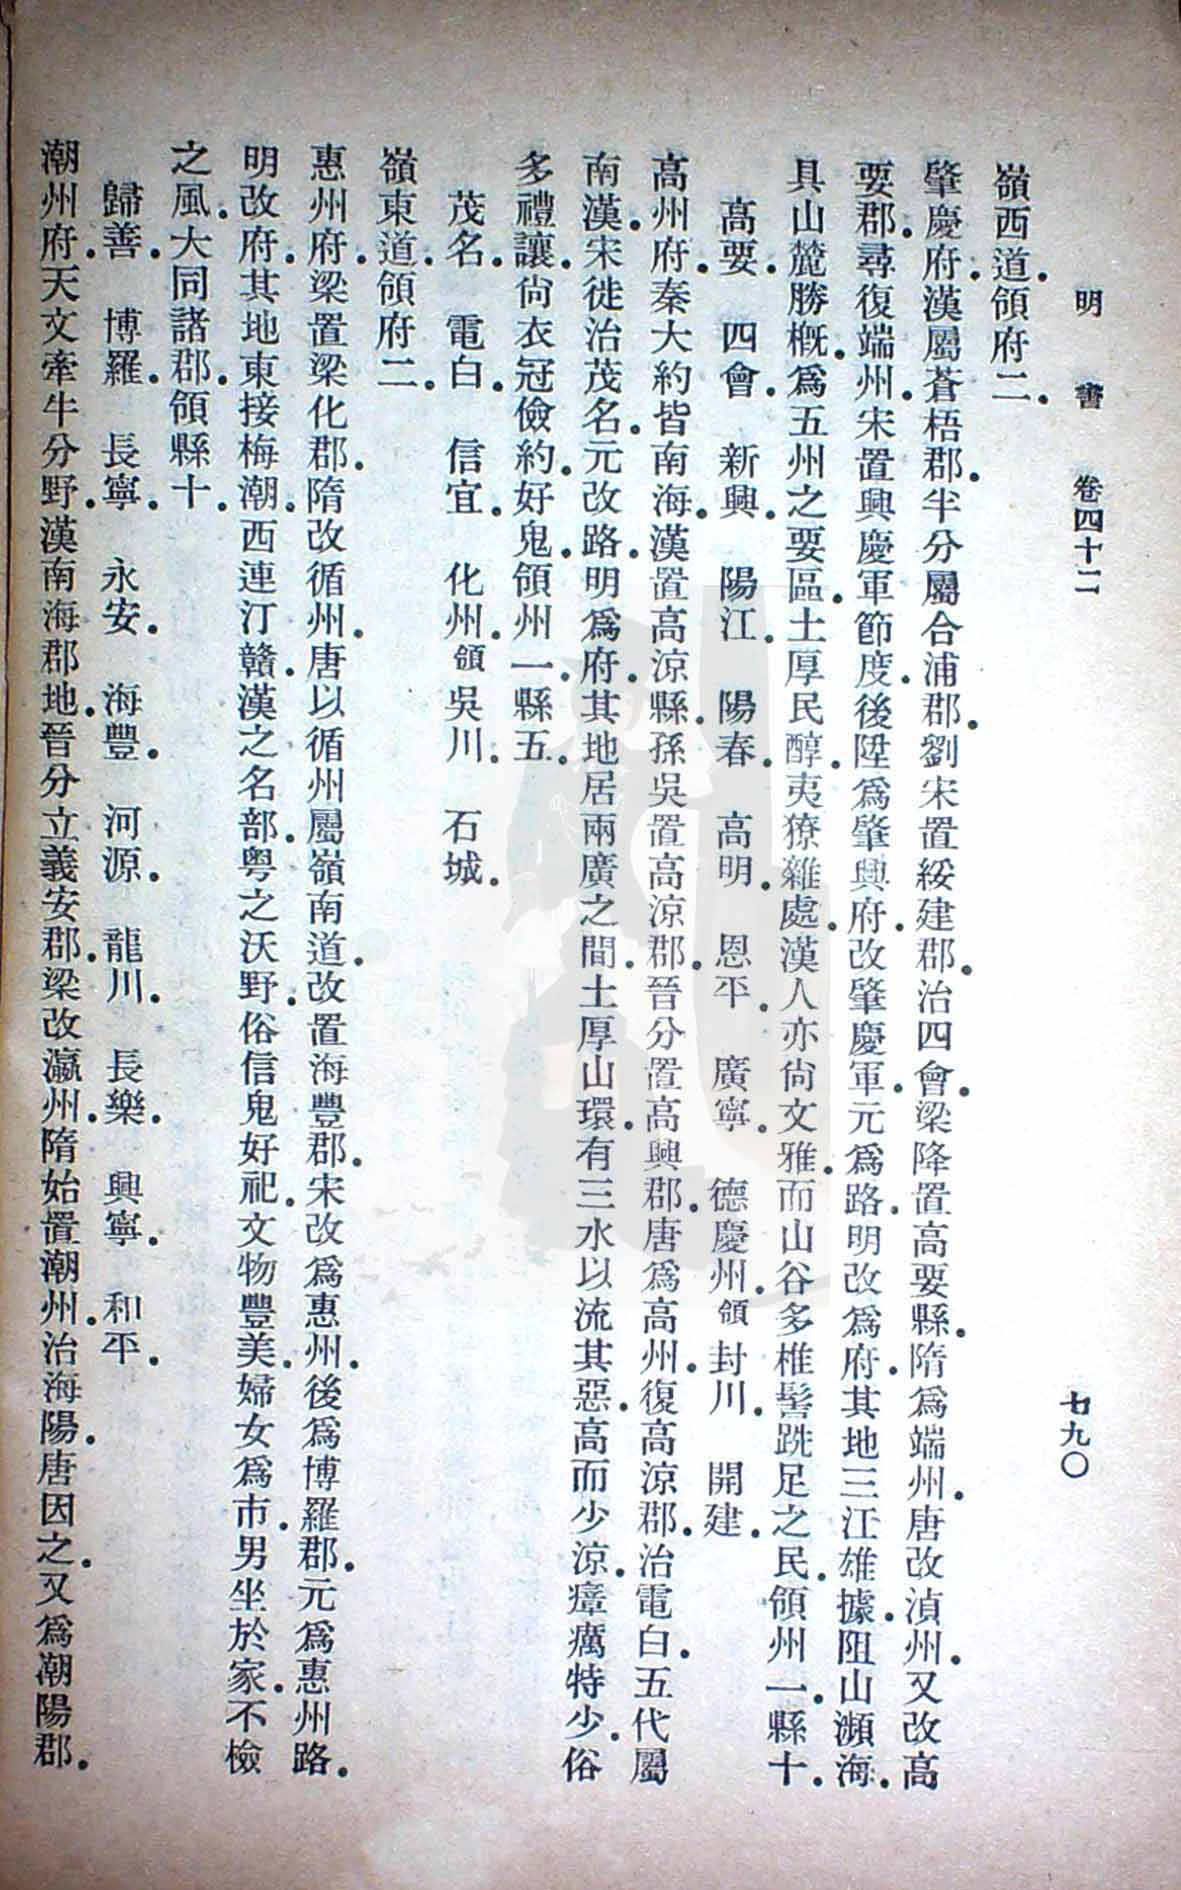 明書 卷四十二 七九〇
嶺西道。領府二。
肇慶府。漢屬蒼梧郡。半分屬合浦郡。劉宋置綏建郡。治四會。梁降置高要縣。隋爲端州。唐改湞州。又改高
要郡。尋復端州。宋置興慶軍節度。後陞爲肇興府。改肇慶軍。元爲路。明改爲府。其地三江雄據。阻山瀕海。
具山麓勝概。爲五州之要區。土厚民醇。夷獠雜處。漢人亦尚文雅。而山谷多椎髻跣足之民。領州一。縣十。
高要。 四會。 新興。 陽江。 陽春。 高明。 恩平。 廣寧。 德慶州。領 封川。 開建。
高州府。秦大約皆南海。漢置高涼縣。孫吳置高涼郡。晉分置高興郡。唐爲高州。復高涼郡。治電白。五代屬
南漢。宋徙治茂名。元改路。明爲府。其地居兩廣之間。土厚山環。有三水以流其惡。高而少涼。瘴癘特少。俗
多禮讓。尚衣冠儉約。好鬼。領州一。縣五。
茂名。 電白。 信宜。 化州。領 吳川。 石城。
嶺東道。領府二。
惠州府。梁置梁化郡。隋改循州。唐以循州屬嶺南道。改置海豐郡。宋改爲惠州。後爲博羅郡。元爲惠州路。
明改府。其地東接梅潮。西連汀贛。漢之名部。粵之沃野。俗信鬼好祀。文物豐美。婦女爲市。男坐於家。不檢
之風。大同諸郡。領縣十。
歸善。 博羅。 長寧。 永安。 海豐。 河源。 龍川。 長樂。 興寧。 和平。
潮州府。天文牽牛分野。漢南海郡地。晉分立義安郡。梁改瀛州。隋始置潮州。治海陽。唐因之。又爲潮陽郡。